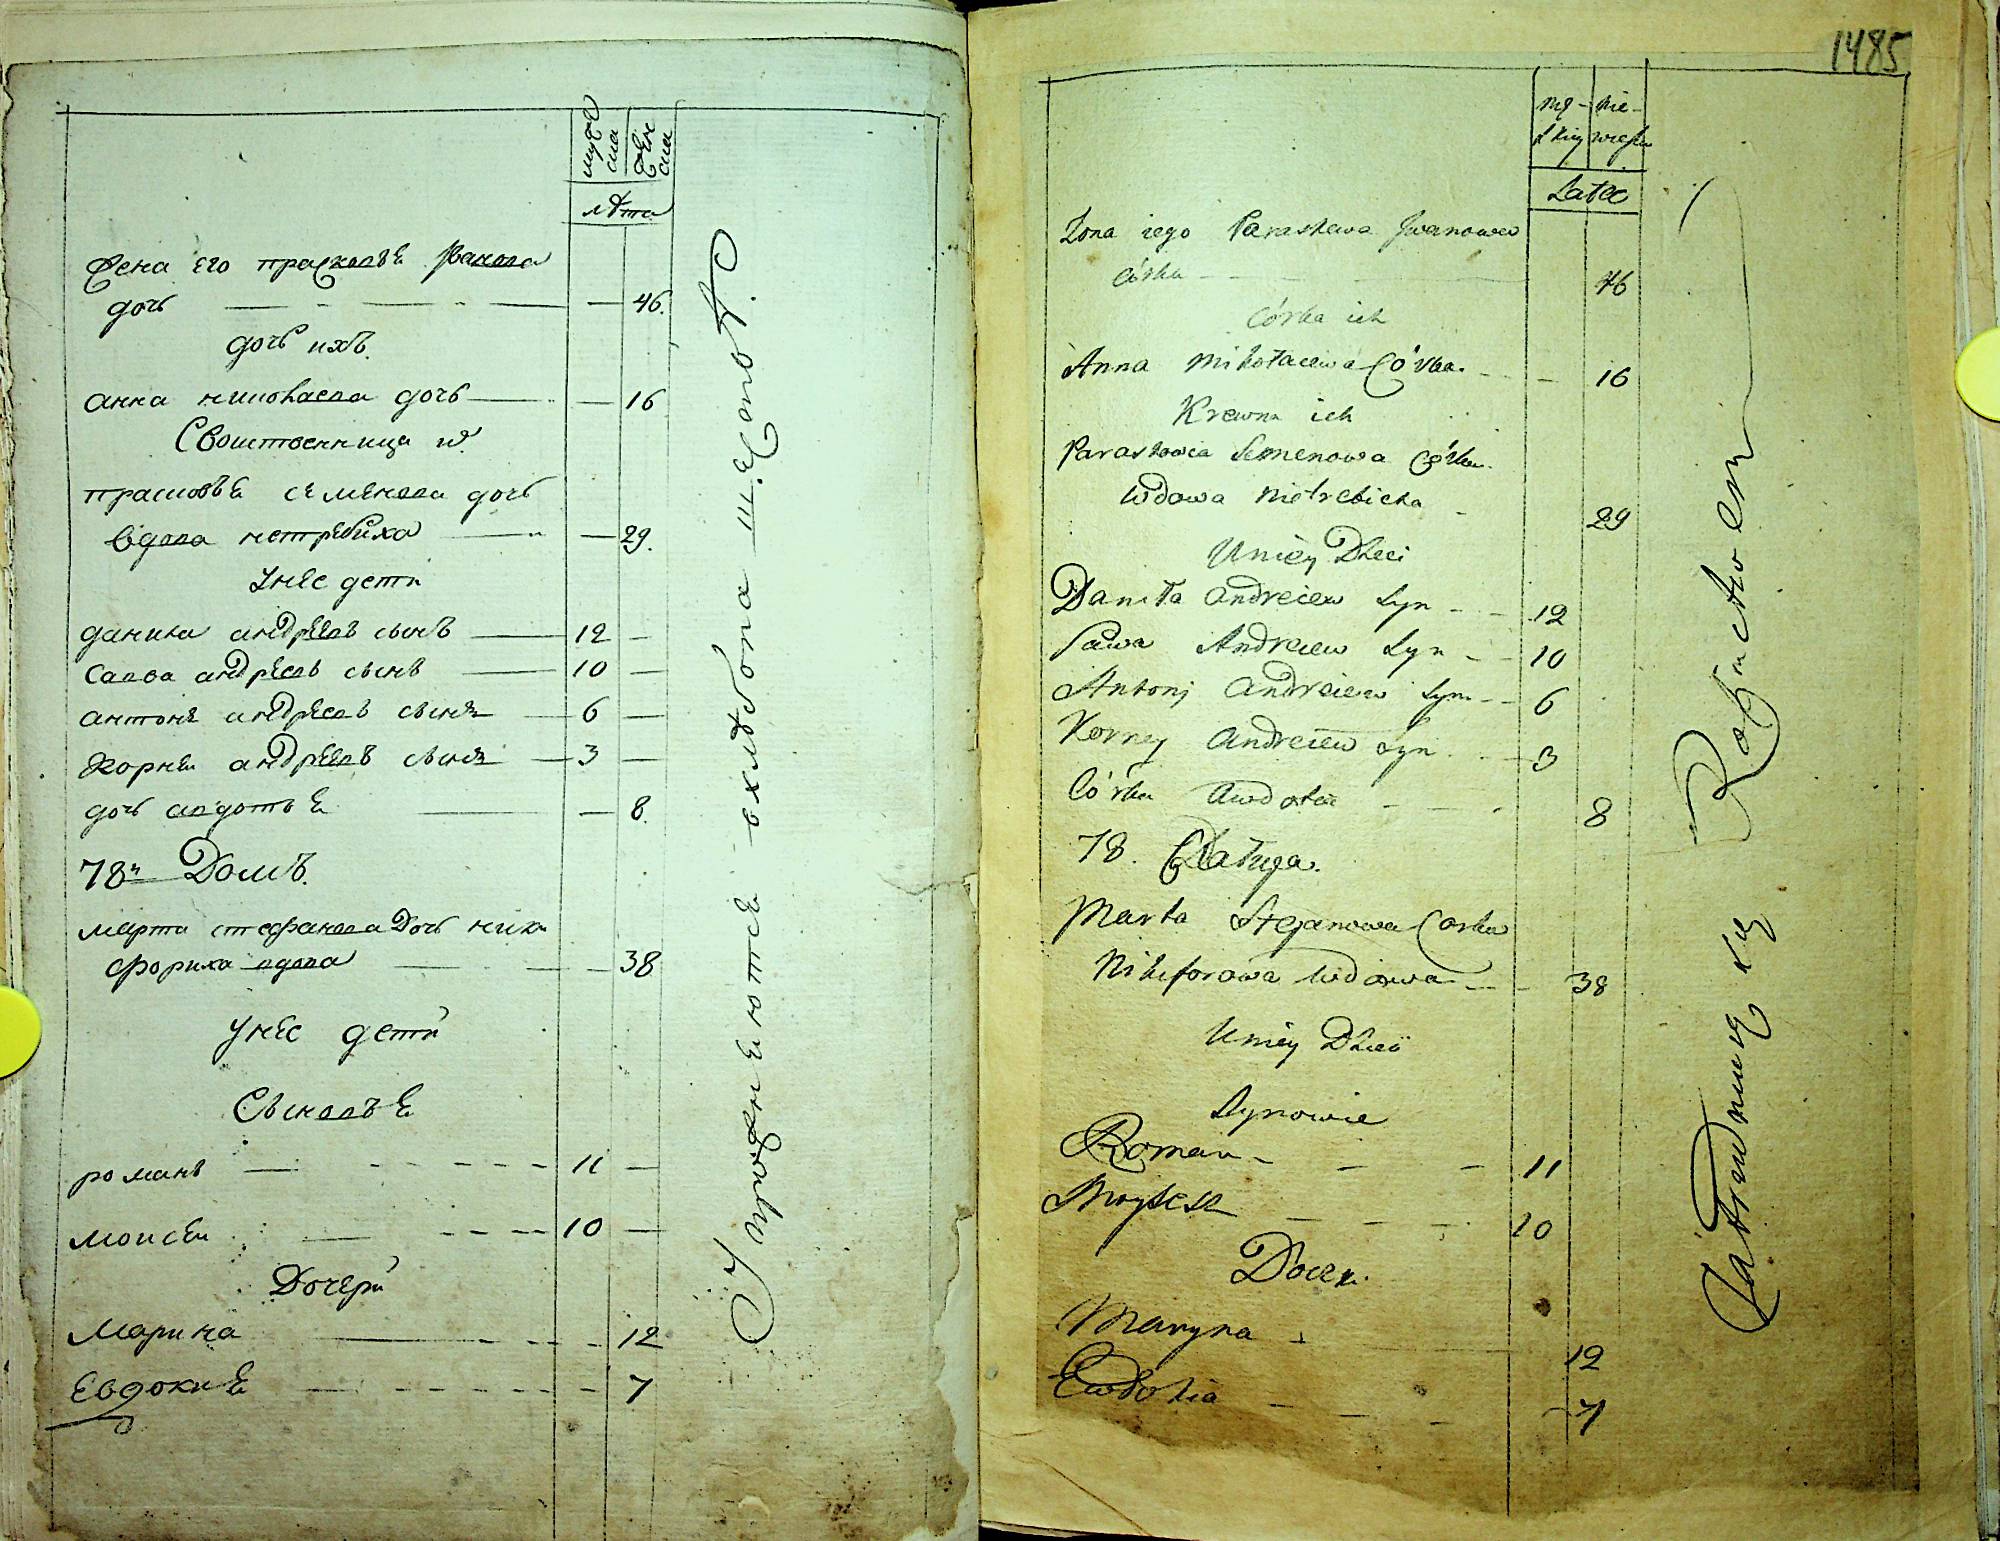 мужеска
женска
лѣта
жена его прасковья Иванова
дочь 46.
дочь ихъ.
анна николаева дочь 16
Свойственница их
прасковья семенова дочь
вдова нетребиха 29.
У нее дети
данила андреевъ сынъ 12
савва андреевъ сынъ 10
антонъ андреевъ сынъ 6
корней андреевъ сынъ 3
дочь авдотья 8.
78й Домъ.
марта стефанова Дочь ники
фориха вдова 38
У нее дети
Сыновья
романъ 11
моисей 10
Дочери
Марина 12
Евдокия 7
Упражняются в хлѣбопашестве.
1485
mę- nie-
skiey wiesk
Lata
Zona iego Paraskewa Iwanowa
Córka 46
Córka ich
Anna Mikołaiewa Córka 16
Krewna ich
Paraskowia Semenowa Córka
Wdowa Nietrebicha 29
U niey Dzieci
Daniła Andreiew Syn 12
Sawa Andreiew Syn 10
Antonj Andreiew Syn 6
Korney Andreiew Syn 3
Córka Awdotia 8
78. Chałupa.
Marta Stefanowa Corka
Nikiforowa Wdowa 38
U niey Dzieci
Synowie
Roman 11
Moysesz 10
Docer
Maryna 12
Ewdokia 7
Zatrudniaią się Rolnictwem